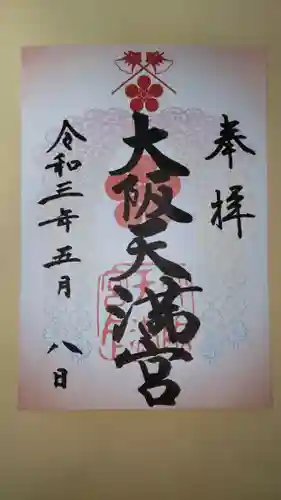 奉拝
大阪天満宮
令和三年五月八日